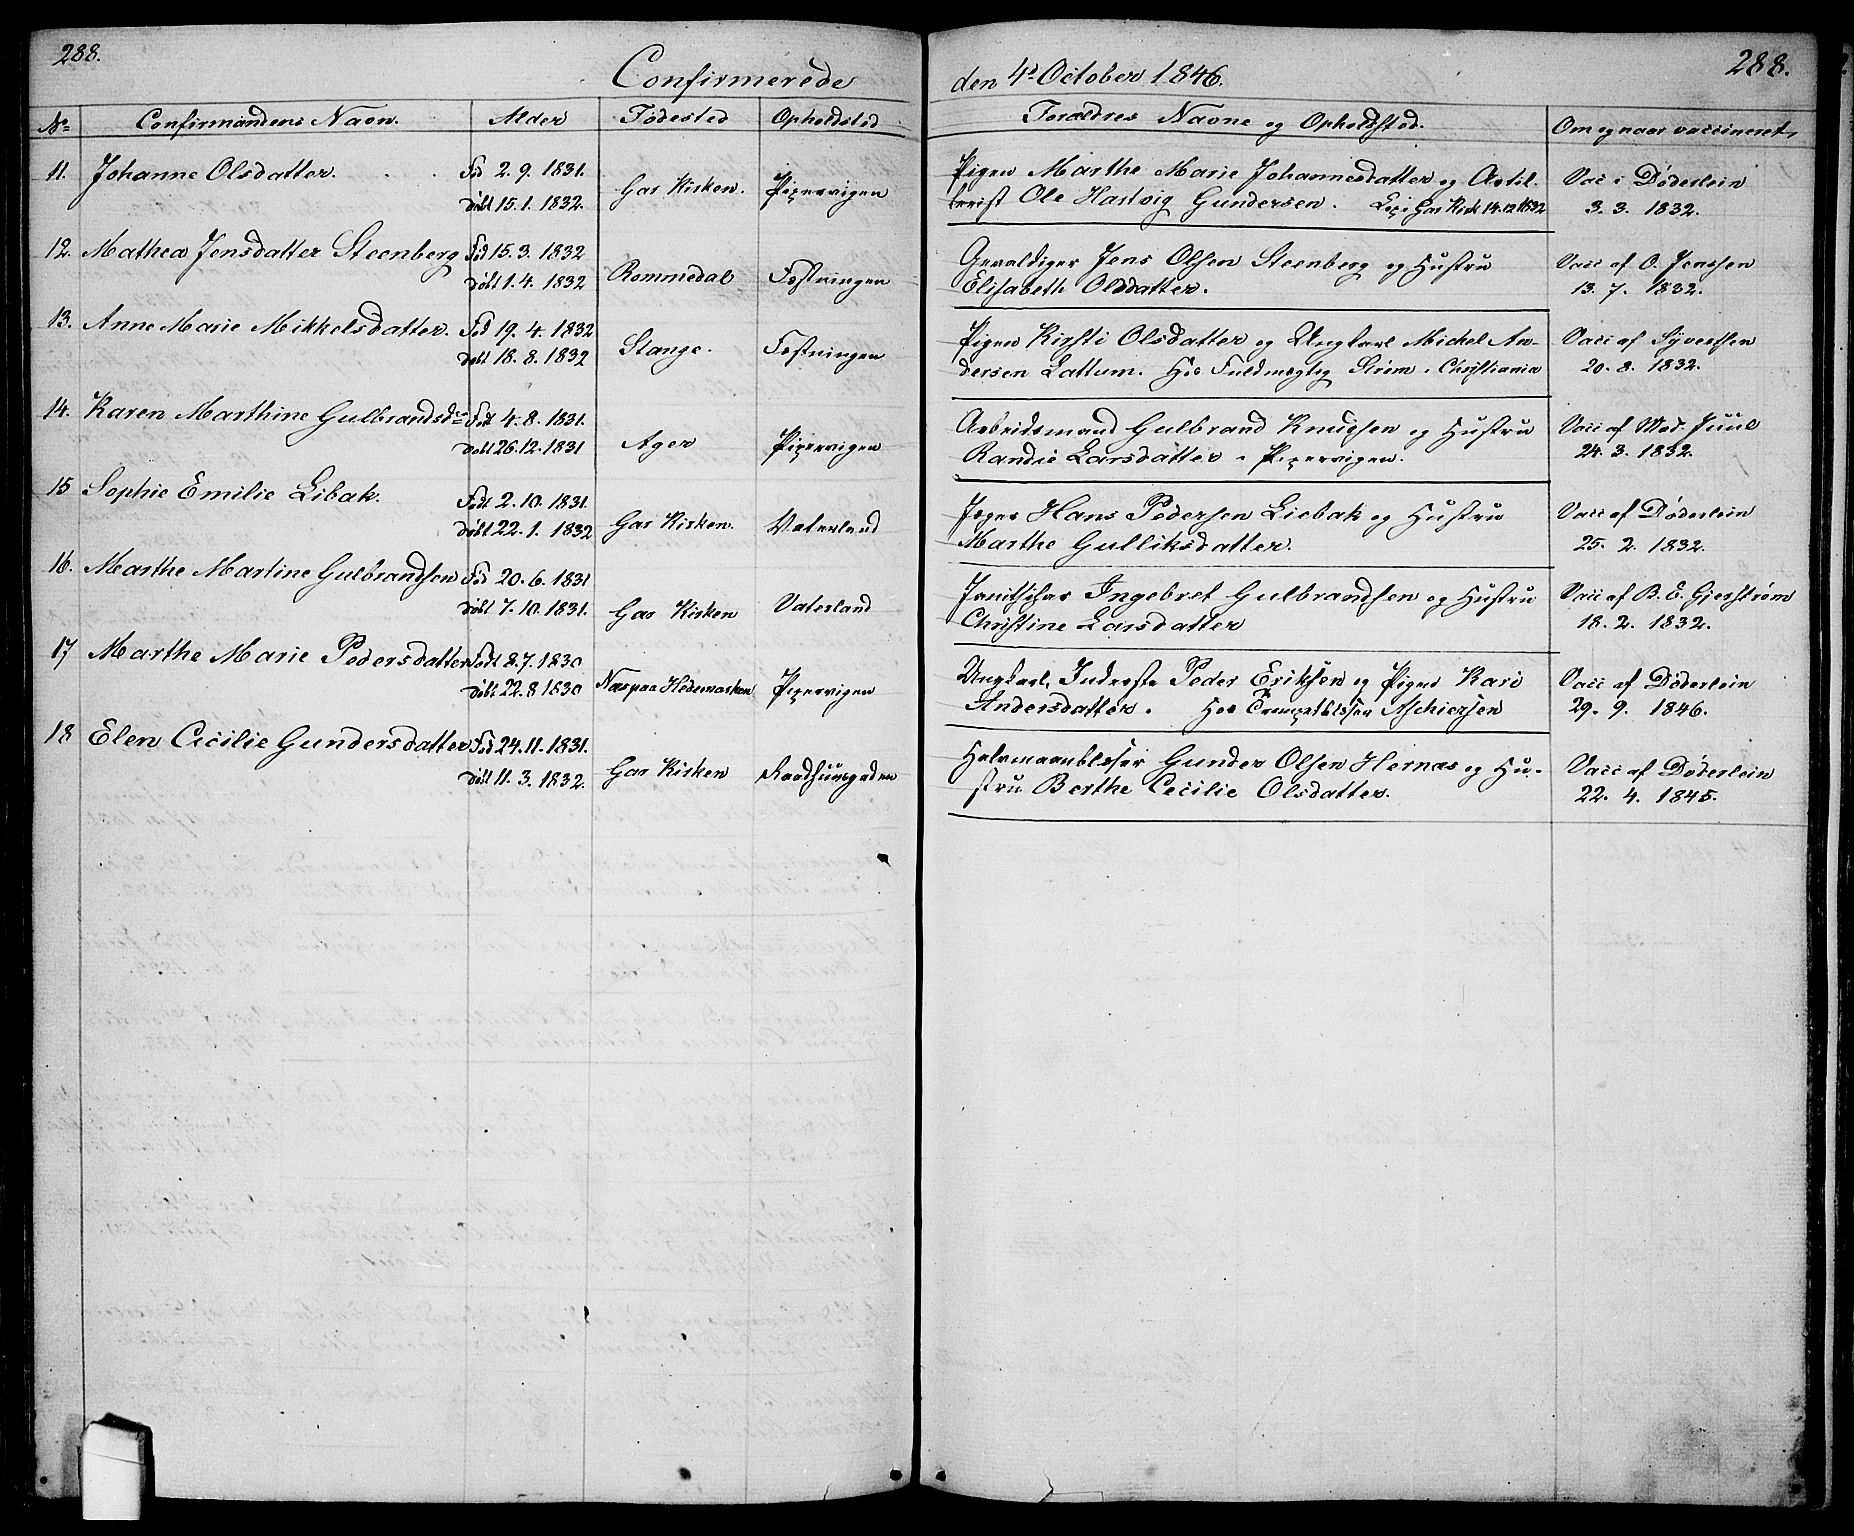 288.
Confirmerede
den 4de October 1846.
288.
No
Confirmandens Navn.
Alder
Fødested
Opholdsted
Forældres Navne og Opholdsted.
Om og naar vaccineret,
11. Johanne Olsdatter. Fød 2. 9. 1831.
døbt 15. 1. 1832. Gar Kirken. Pipervigen
Pigen Marthe Marie Johannesdatter og Artil-
lerist Ole Hartvig Gundersen. i Gar Kirk 14.12 1832
Vac i Døderlein
3. 3. 1832.
12. Mathea Jensdatter Steenberg Fød 15. 3. 1832
døbt 1. 4. 1832 Rommedal Fæstningen
Gevaldiger Jens Olsen Steenberg og Hustru
Elisabeth Olsdatter.
Vacc af O. Jenssen
13. 7. 1832.
13. Anne Marie Mikkelsdatter. Fød 19. 4. 1832
døbt 18. 8. 1832 Stange. Fæstningen
Pigen Kirsti Olsdatter og Ungkarl Michel An-
dersen Lattum. Hos Fuldmægtig Strøm i Christiania
Vacc af Syvertsen
20. 8. 1832.
14. Karen Marthine Gulbrandsd. Født 4. 8. 1831.
døbt 26. 12. 1831 Ager Pipervigen
Arbeidsmand Gulbrand Knudsen og Hustru
Randie Larsdatter i Pipervigen.
Vacc af Mad. Juul
24. 3. 1832.
15 Sophie Emilie Libak. Født 2. 10. 1831.
døbt 22. 1. 1832 Gar Kirken. Vaterland
Jæger Hans Pedersen Liebak og Hustru
Marthe Gulliksdatter.
Vacc af Døderlein
25. 2. 1832.
16. Marthe Martine Gulbrandsen Fød 20. 6. 1831
døbt 7. 10. 1831. Gar Kirken Vaterland
Janitschar Ingebret Gulbrandsen og Hustru
Christine Larsdatter
Vacc af B. E. Gjerstrøm
18. 2. 1832.
17 Marthe Marie Pedersdatter Født 8. 7. 1830
døbt 22. 8 1830 Næs paa Hedemarken Pipervigen
Ungkarl, Inderste Peder Eriksen og Pigen Kari
Andersdatter. Hos Trompetblæser Aschiersen
Vacc af Døderlein
29. 9. 1846.
18 Elen Cicilie Gundersdatter Fød 24. 11. 1831.
døbt 11. 3. 1832. Gar Kirken Raadhuusgaden
Halvmaanblæser Gunder Olsen Hernæs og Hu-
stru Berthe Cecilie Olsdatter.
Vacc af Døderlein
22. 4. 1845.